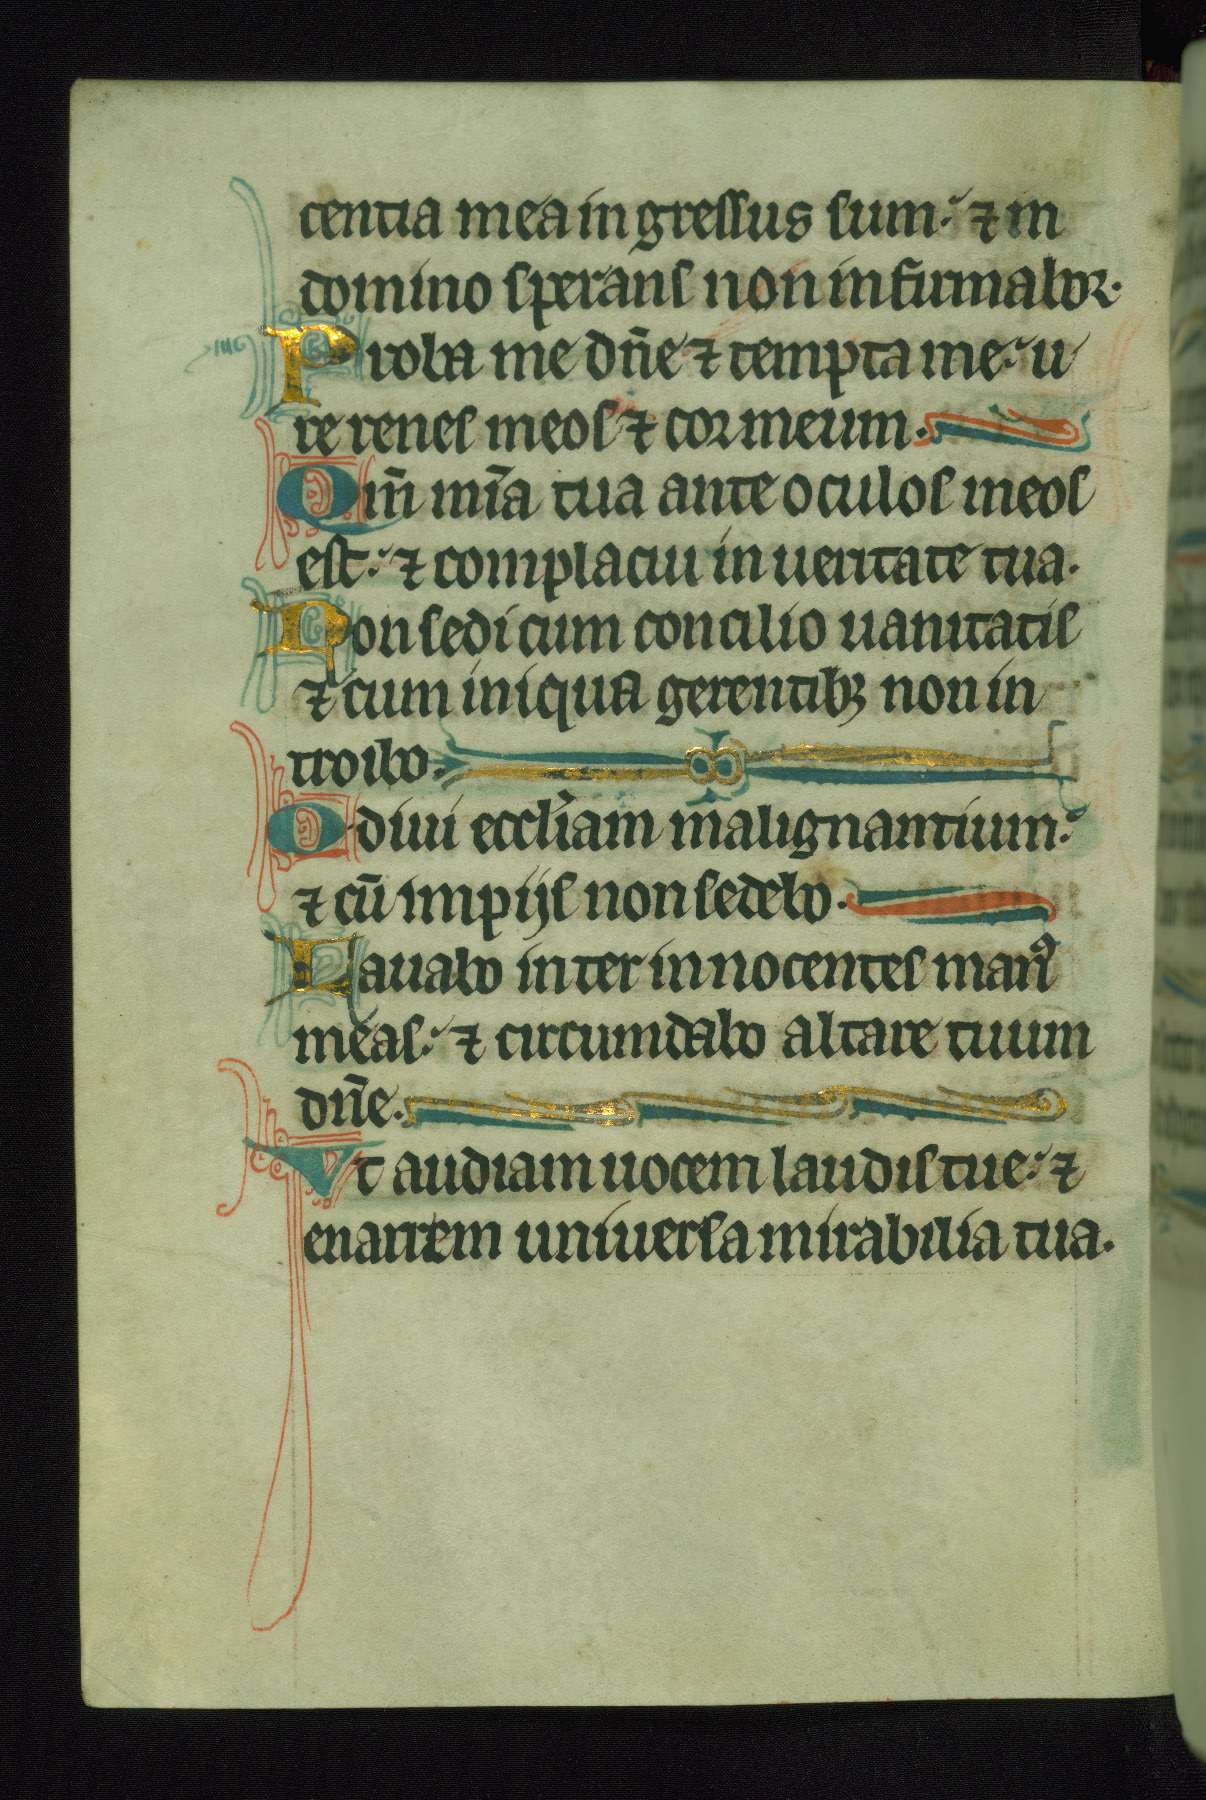 centia mea ingressus sum. ⁊ in
domino sperans non infirmabor.
Proba me dn̄e ⁊ tempta me. u
re renes meos ⁊ cor meum.
Qm̄ mīa tua ante oculos meos
est. ⁊ complacui in ueritate tua.
Non sedi cum concilio uanitatis
⁊ cum iniqua gerentibꝫ non in
troibo.
Odiui eccl̄iam malignantium.
⁊ cū impijs non sedebo.
Lauabo inter innocentes manꝰ
meas. ⁊ circumdabo altare tuum
dn̄e.
Vt audiam uocem laudis tue. ⁊
enarrem uniuersa mirabilia tua.